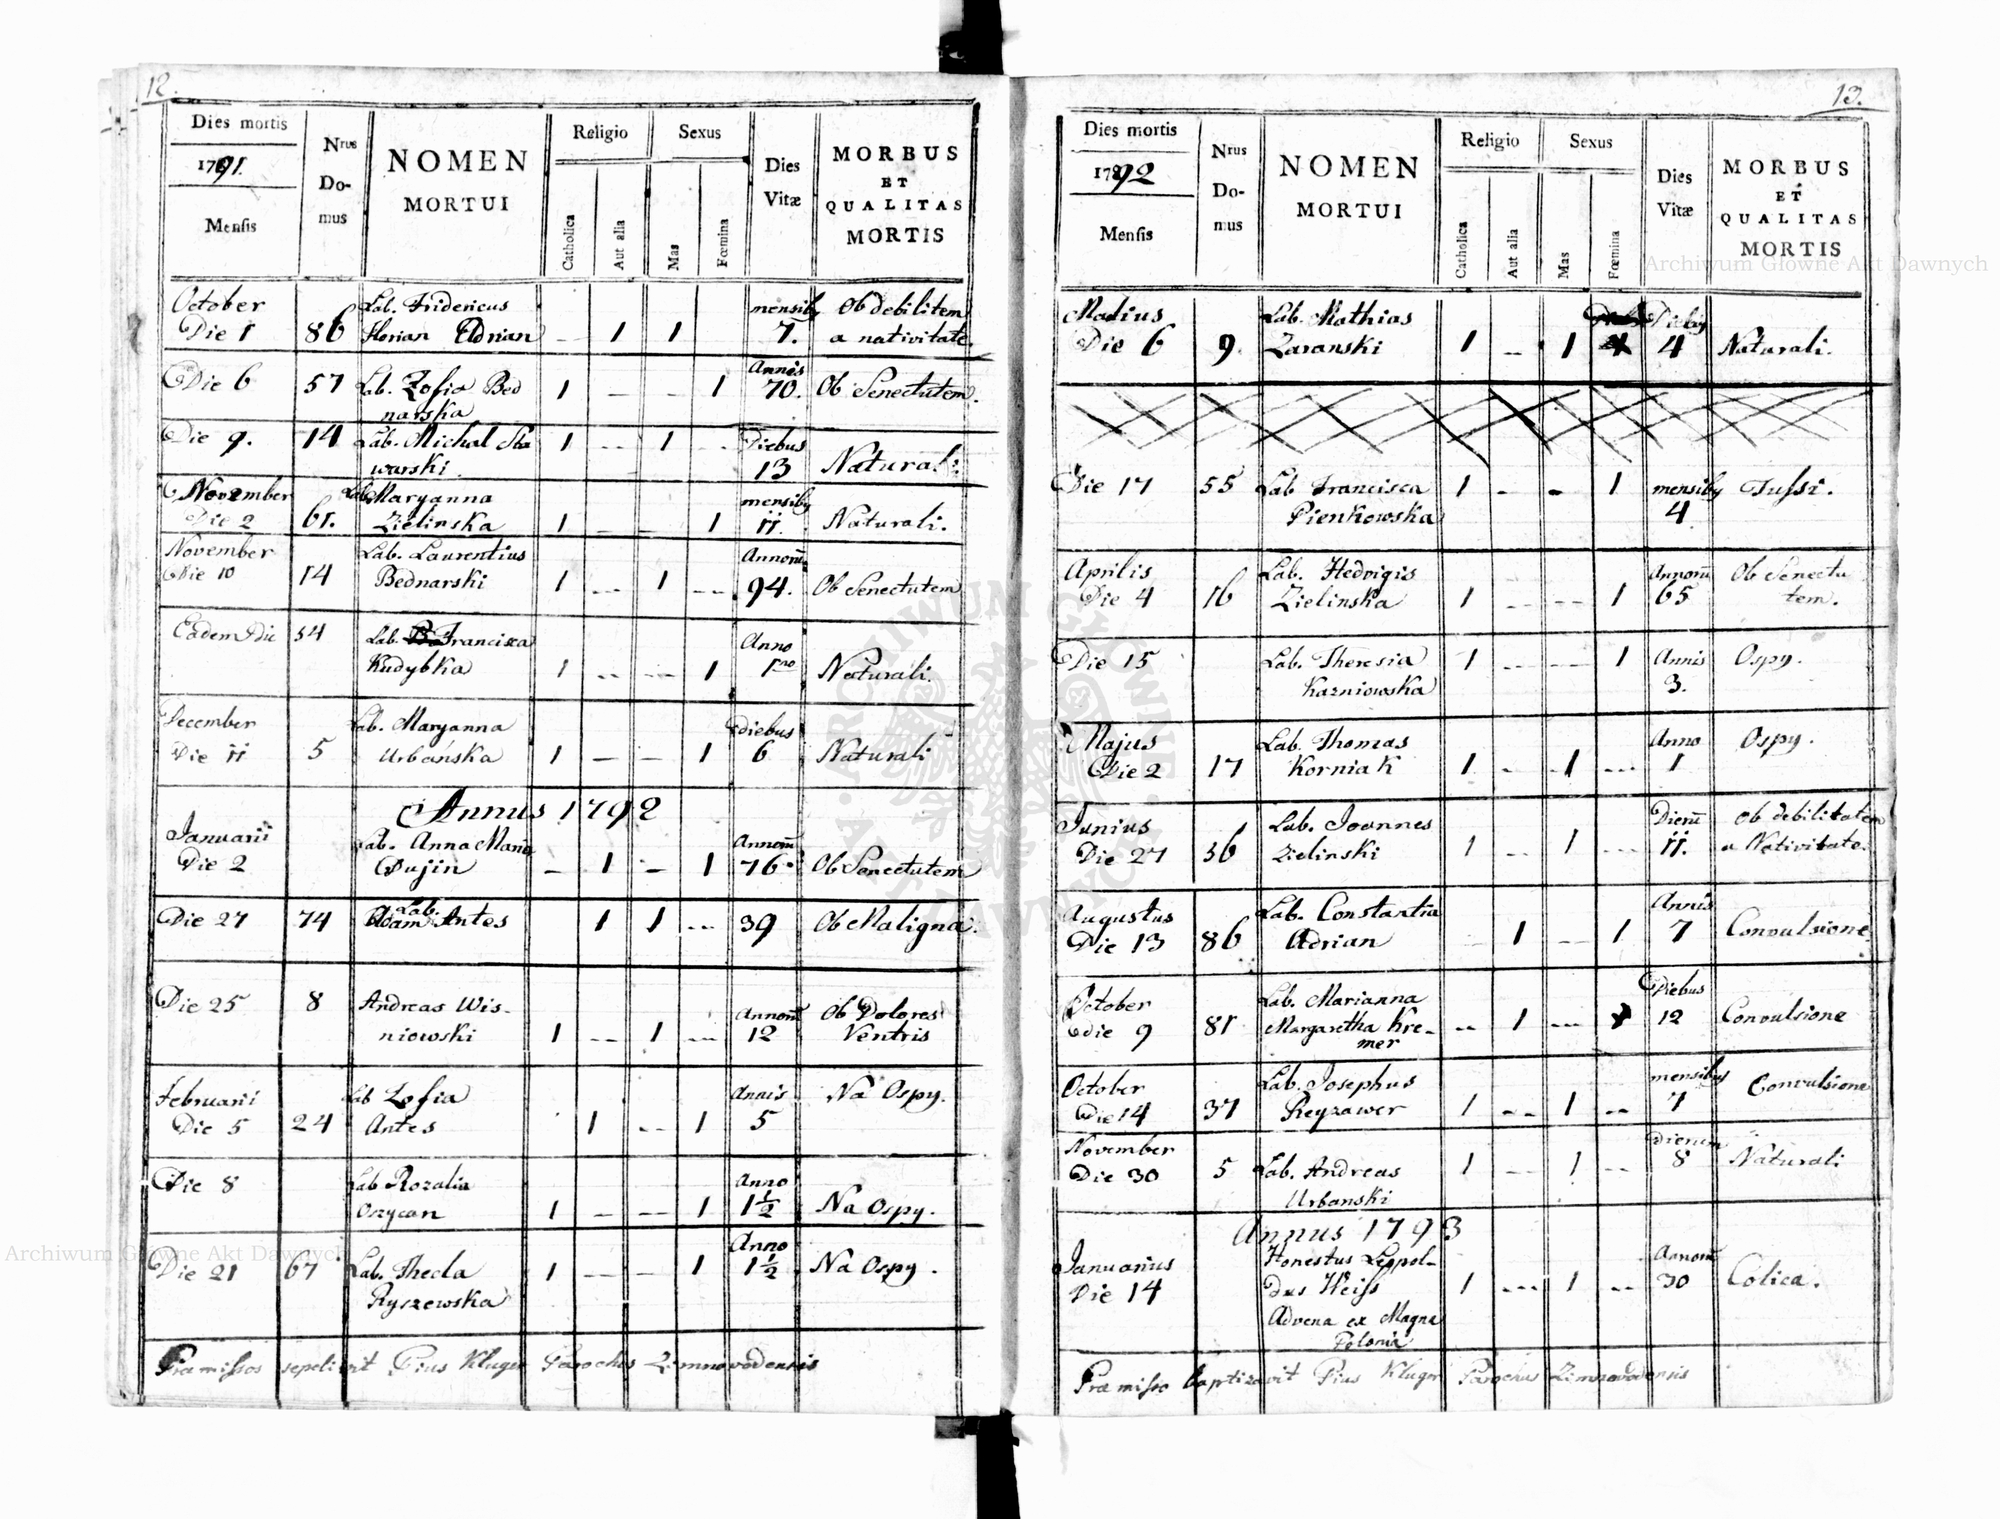 12.
Dies mortis
1791.
Mensis
Nrus
Do-
mus
NOMEN
MORTUI
Religio
Catholica
Aut alia
Sexus
Mas
Fœmina
Dies
Vitæ
MORBUS
ET
QUALITAS
MORTIS
October Lab. Fridericus mensiby Ob debilitem
Die 1 86 Florian Adrian - 1 1 7. a nativitate.
Annis
Die 6 57 Lab. Zofia Bed 1 - - 1 70. Ob Senectutem.
narska
Die 9. 14 Lab. Michal Ska 1 - 1 - Diebus
warski. 13 Naturali.
November Lab. Maryanna mensiby
Die 2 61. Zielinska 1 - - 1 11. Naturali.
November Lab. Laurentius Annorum
Die 10 14 Bednarski 1 - 1 - 94. Ob Senectutem
Eadem die 54 Lab. Francisca Anno
Kudybka 1 - - 1 1mo Naturali.
December Lab. Maryanna diebus
Die 11 5 Urbańska 1 - - 1 6 Naturali
Annus 1792
Januarii Lab. Anna Maria Annorum
Die 2 Dujin - 1 - 1 76. Ob Senectutem
Lab.
Die 27 74 Adam Antes 1 1 - 39 Ob Maligna.
Die 25 8 Andreas Wis- Annorum Ob Dolores
niowski 1 - 1 - 12 Ventris
Februarii Lab Zofia Annis Na Ospy.
Die 5 24 Antes 1 - 1 5
Die 8 Lab Rozalia Anno
Oszycan 1 - - 1 1½ Na Ospy.
Anno
Die 21 67 Lab. Thecla 1 - - 1 1½ Na Ospy.
Ryszewska
Præmissos sepelivit Pius Kluger Parochus Zimnovodensis
13.
Dies mortis
17892
Mensis
Nrus
Do-
mus
NOMEN
MORTUI
Religio
Catholica
Aut alia
Sexus
Mas
Fœmina
Dies
Vitæ
MORBUS
ET
QUALITAS
MORTIS
Madius Lab. Mathias Dieby
Die 6 9 Zaranski 1 - 1 4 Naturali.
Die 17 55 Lab Francisca 1 - - 1 mensiby Tussi.
Pienkowska 4
Aprilis Lab. Hedvigis Annorum Ob Senectu
Die 4 16 Zielinska 1 - - 1 65 tem.
Die 15 Lab. Theresia 1 - - 1 Annis Ospy.
Kazniowska 3.
Majus Lab. Thomas Anno Ospy.
Die 2 17 Korniak 1 - 1 - 1
Junius Lab. Joannes Dierum Ob debilitatem
Die 27 36 Zielinski 1 - 1 - 11. a Nativitate.
Augustus Lab. Constantia Annis
Die 13 86 Adrian - 1 - 1 7 Convulsione.
October Lab. Marianna Diebus
die 9 81 Margaretha Kre- - 1 - 1 12 Convulsione
mer
October Lab. Josephus mensiby Convulsione
Die 14 37 Reyzawer 1 - 1 - 7
November Dierum
Die 30 5 Lab. Andreas 1 - 1 - 8 Naturali
Urbanski
Annus 1793
Januarius Honestus Leopol- Annorum
Die 14 dus Weiss 1 - 1 - 30 Colica.
Advena ex Magna
Polonia
Præmisso baptizavit Pius Kluger Parochus Zimnovodensis
Archiwum Główne Akt Dawnych
Archiwum Główne Akt Dawnych
ARCHIWUM GŁÓWNE AKT DAWNYCH